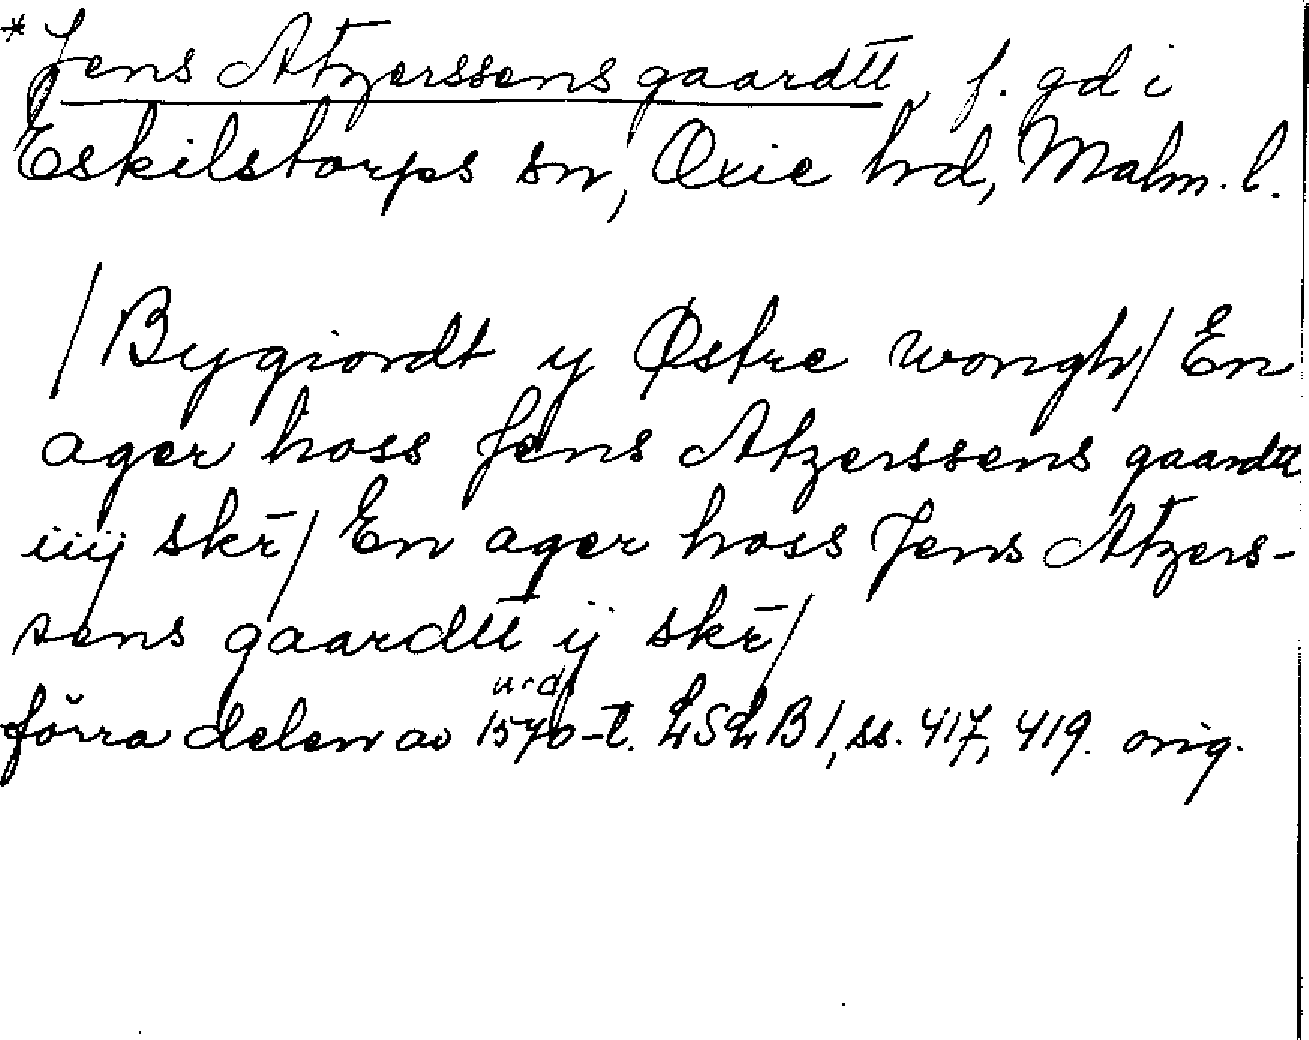 * Jens Atzerssens gaardtt, f. gd i
Eskilstorps sn, Oxie hd, Malm. l.
/Bygiordt y Østre wongh/ En
ager hoss Jens Atzerssens gaardtt
iiij skē/ En ager hoss Jens Atzers-
sens gaardtt ij skē/
u.d.
förra delen av 1570-t. LSLB 1, ss. 417, 419. orig.